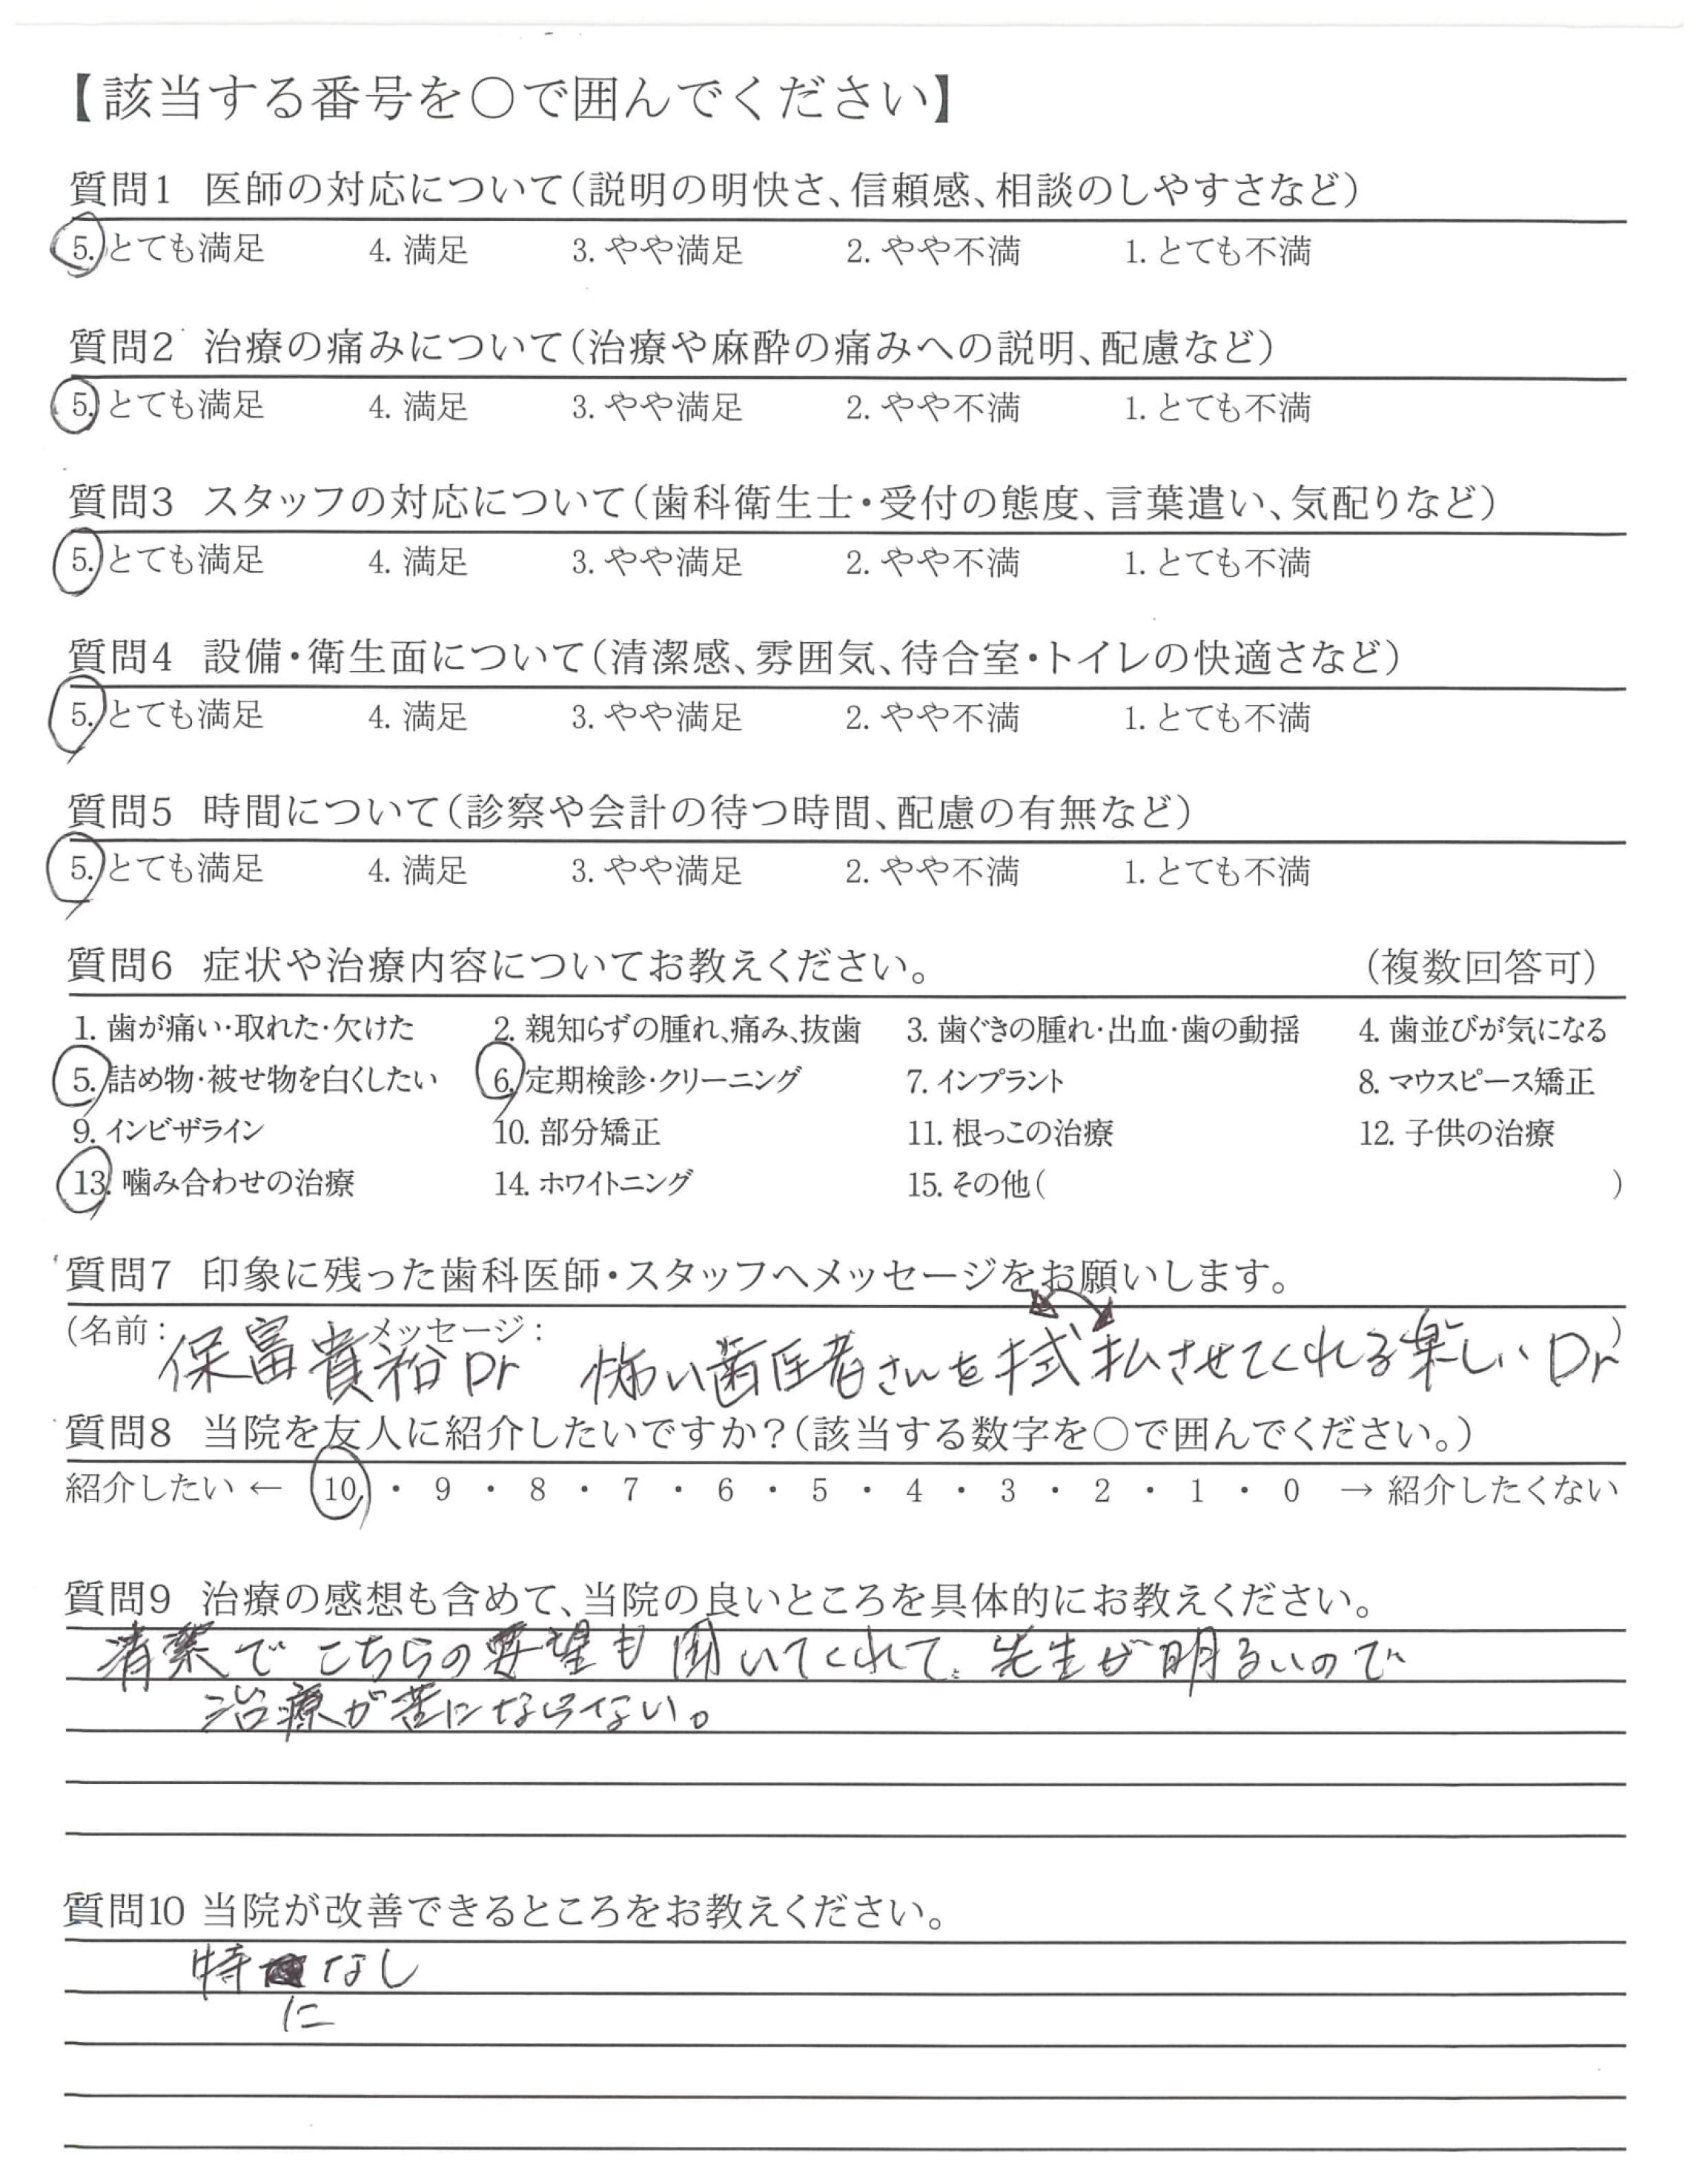 【該当する番号を○で囲んでください】
質問1 医師の対応について(説明の明快さ、信頼感、相談のしやすさなど)
5. とても満足 4. 満足 3. やや満足 2. やや不満 1. とても不満
質問2 治療の痛みについて(治療や麻酔の痛みへの説明、配慮など)
5. とても満足 4. 満足 3. やや満足 2. やや不満 1. とても不満
質問3 スタッフの対応について(歯科衛生士・受付の態度、言葉遣い、気配りなど)
5. とても満足 4. 満足 3. やや満足 2. やや不満 1. とても不満
質問4 設備・衛生面について(清潔感、雰囲気、待合室・トイレの快適さなど)
5. とても満足 4. 満足 3. やや満足 2. やや不満 1. とても不満
質問5 時間について(診察や会計の待つ時間、配慮の有無など)
5. とても満足 4. 満足 3. やや満足 2. やや不満 1. とても不満
質問6 症状や治療内容についてお教えください。 (複数回答可)
1. 歯が痛い・取れた・欠けた 2. 親知らずの腫れ、痛み、抜歯 3. 歯ぐきの腫れ・出血・歯の動揺 4. 歯並びが気になる
5. 詰め物・被せ物を白くしたい 6. 定期検診・クリーニング 7. インプラント 8. マウスピース矯正
9. インビザライン 10. 部分矯正 11. 根っこの治療 12. 子供の治療
13. 噛み合わせの治療 14. ホワイトニング 15. その他( )
質問7 印象に残った歯科医師・スタッフへメッセージをお願いします。
(名前: 保富貴裕Dr メッセージ: 怖い歯医者さんを拭払させてくれる楽しいDr)
質問8 当院を友人に紹介したいですか?(該当する数字を○で囲んでください。)
紹介したい ← 10 ・ 9 ・ 8 ・ 7 ・ 6 ・ 5 ・ 4 ・ 3 ・ 2 ・ 1 ・ 0 → 紹介したくない
質問9 治療の感想も含めて、当院の良いところを具体的にお教えください。
清潔でこちらの要望も聞いてくれて、先生が明るいので
治療が苦にならない。
質問10 当院が改善できるところをお教えください。
特になし